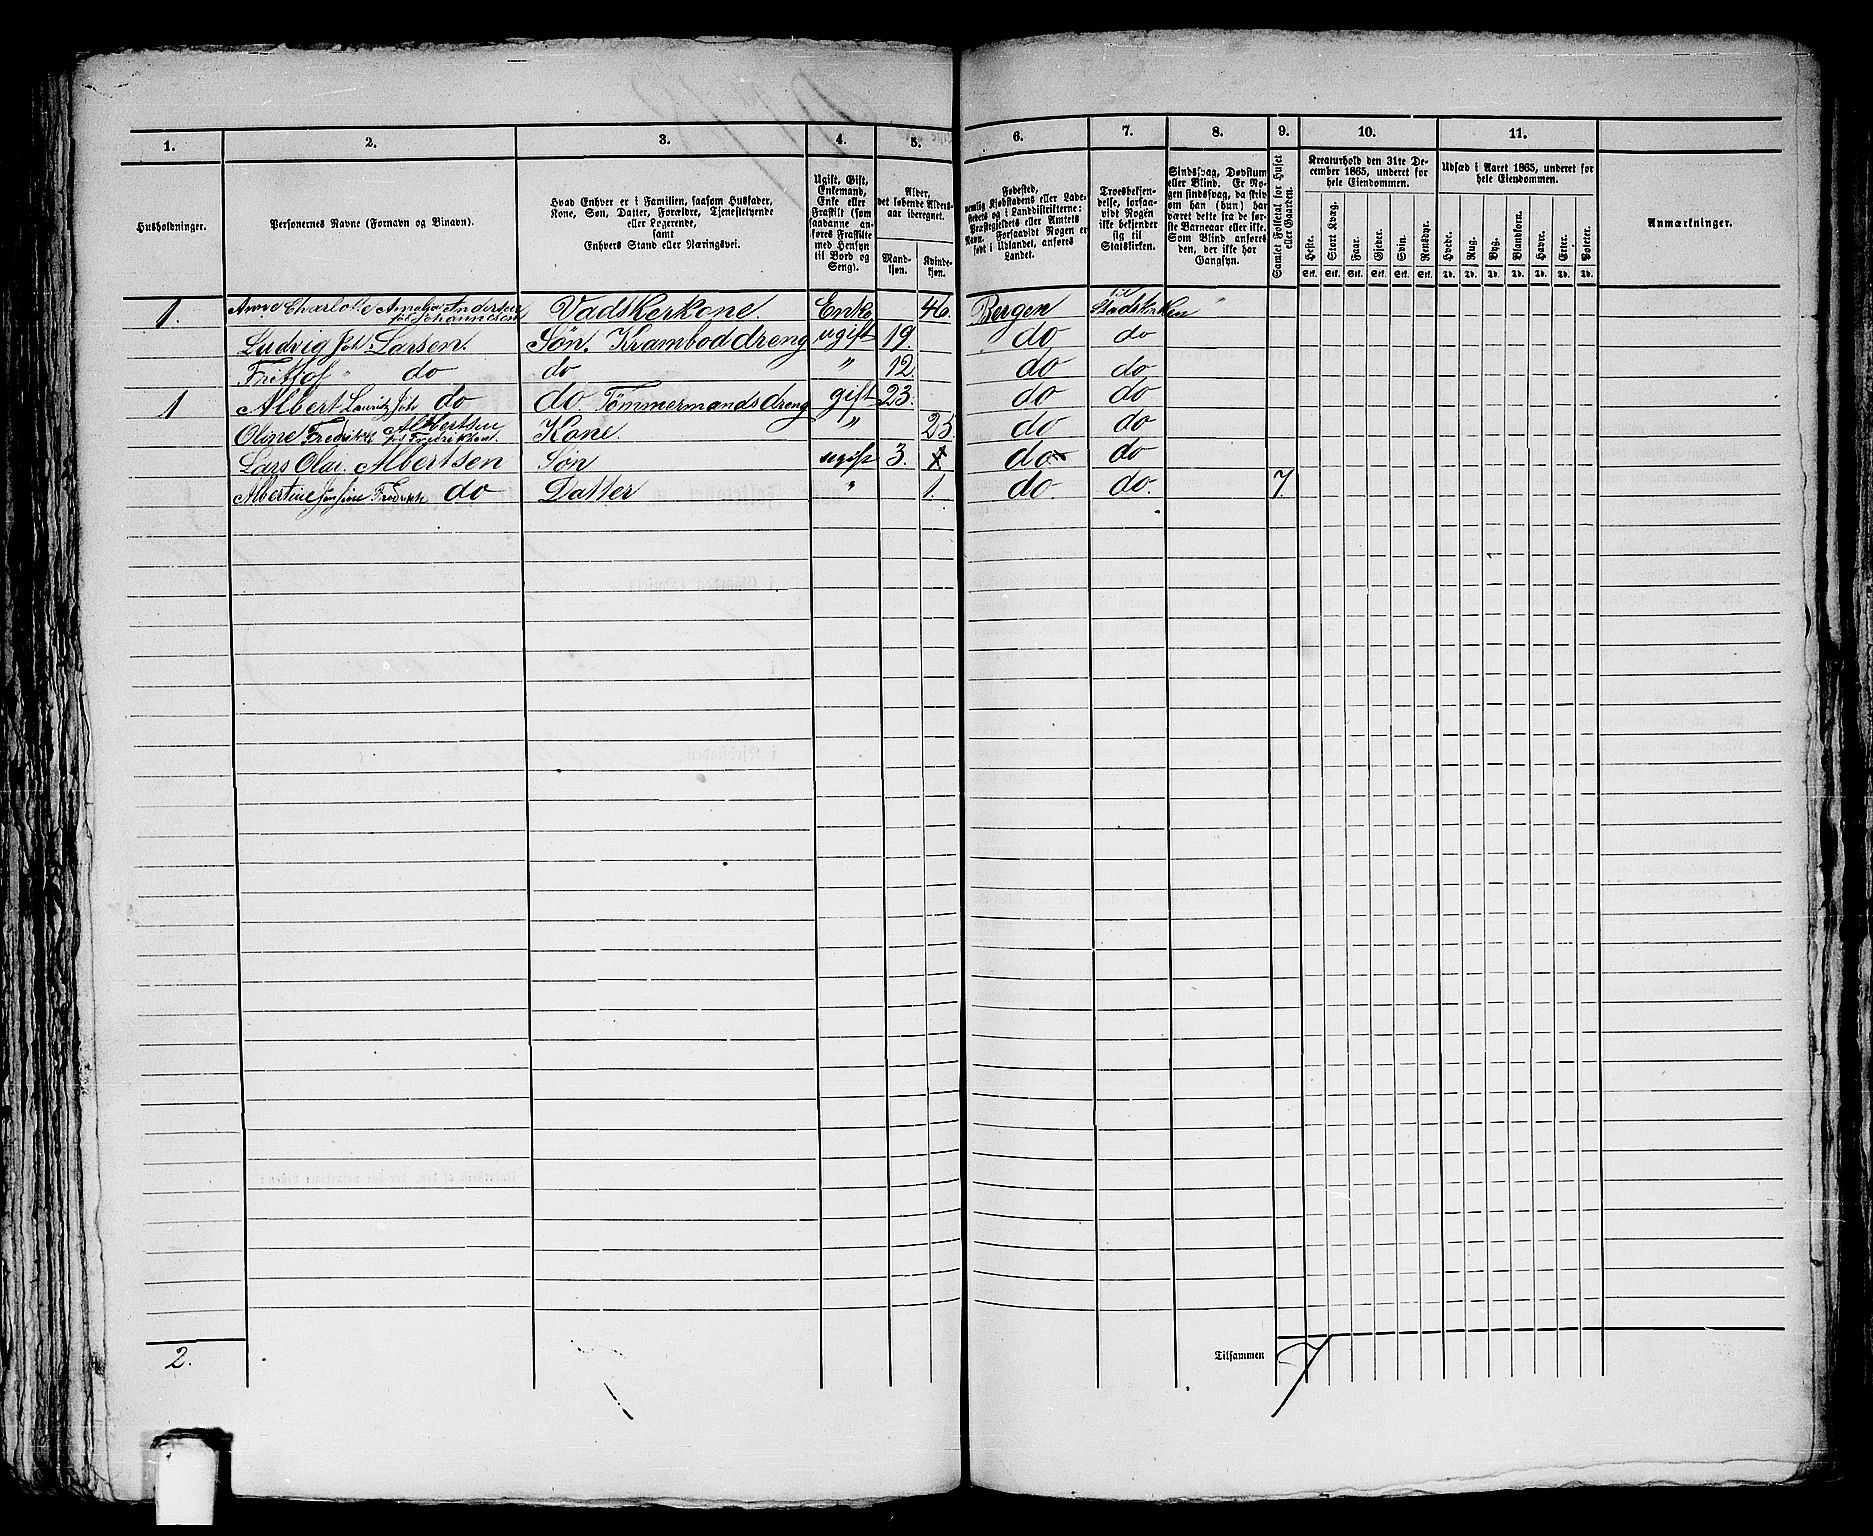 1. 2. 3. 4. 5. 6. 7. 8. 9. 10. 11.
Husholdninger.
Personernes Navne (Fornavn og Binavn).
Hvad Enhver er i Familien, saasom Husfader,
Kone, Søn, Datter, Forældre, Tjenestetyende
eller Logerende,
samt
Enhvers Stand eller Næringsvei.
Ugift, Gift,
Enkemand,
Enke eller
Fraskilt (som
saadanne an-
føres Fraskilte
med Hensyn
til Bord og
Seng).
Alder,
det løbende Alders-
aar iberegnet.
Mand-
kjøn.
Kvinde-
kjøn.
Fødested,
nemlig Kjøbstadens eller Lade-
stedets og i Landdistrikterne:
Præstegjeldets eller Amtets
Navn. Forsaavidt Nogen er
født i Udlandet, anføres
Landet.
Troesbekjen-
delse, forsaa-
vidt Nogen
ikke bekjender
sig til
Statskirken.
Sindssvag, Døvstum
eller Blind. Er No-
gen sindssvag, da skriv
om han (hun) har
været dette fra de før-
ste Barneaar eller ikke.
Som Blind anføres
den, der ikke har
Gangsyn.
Samlet Folketal for Huset
eller Gaarden.
Kreaturhold den 31te De-
cember 1865, underet for
hele Eiendommen.
Heste. Stort Kvæg. Faar. Gjeder. Svin. Rensdyr.
Stk. Stk. Stk. Stk. Stk. Stk.
Udsæd i Aaret 1865, underet for
hele Eiendommen.
Hvede. Rug. Byg. Blandkorn. Havre. Erter. Poteter.
Td. Td. Td. Td. Td. Td. Td.
Anmærkninger.
1. Anne Charlotte Amalia Andersen født Johannesen Vadskerkone. Enke 46. Bergen til Stadskirken "
Ludvig Joh. Larsen. Søn. Kramboddreng ugift 19. do do
Fritjof " do do " 12. do do
1 Albert Lauritz Joh do do Tømmermandsdreng gift 23. do do
Oline Fredrikke Albertsen født Fredrikksen. Kone. " 25. do do
Lars Olai. Albertsen Søn ugift 3. do do
Albertine Jensine Fredrikke do Datter " 1. do do. 7.
2. Tilsammen 7